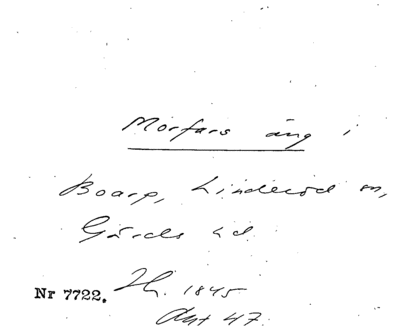 Morfars äng i
Boarp, Linderöd sn,
Gärds hd.
Nr 7722. 1845
Akt 47.